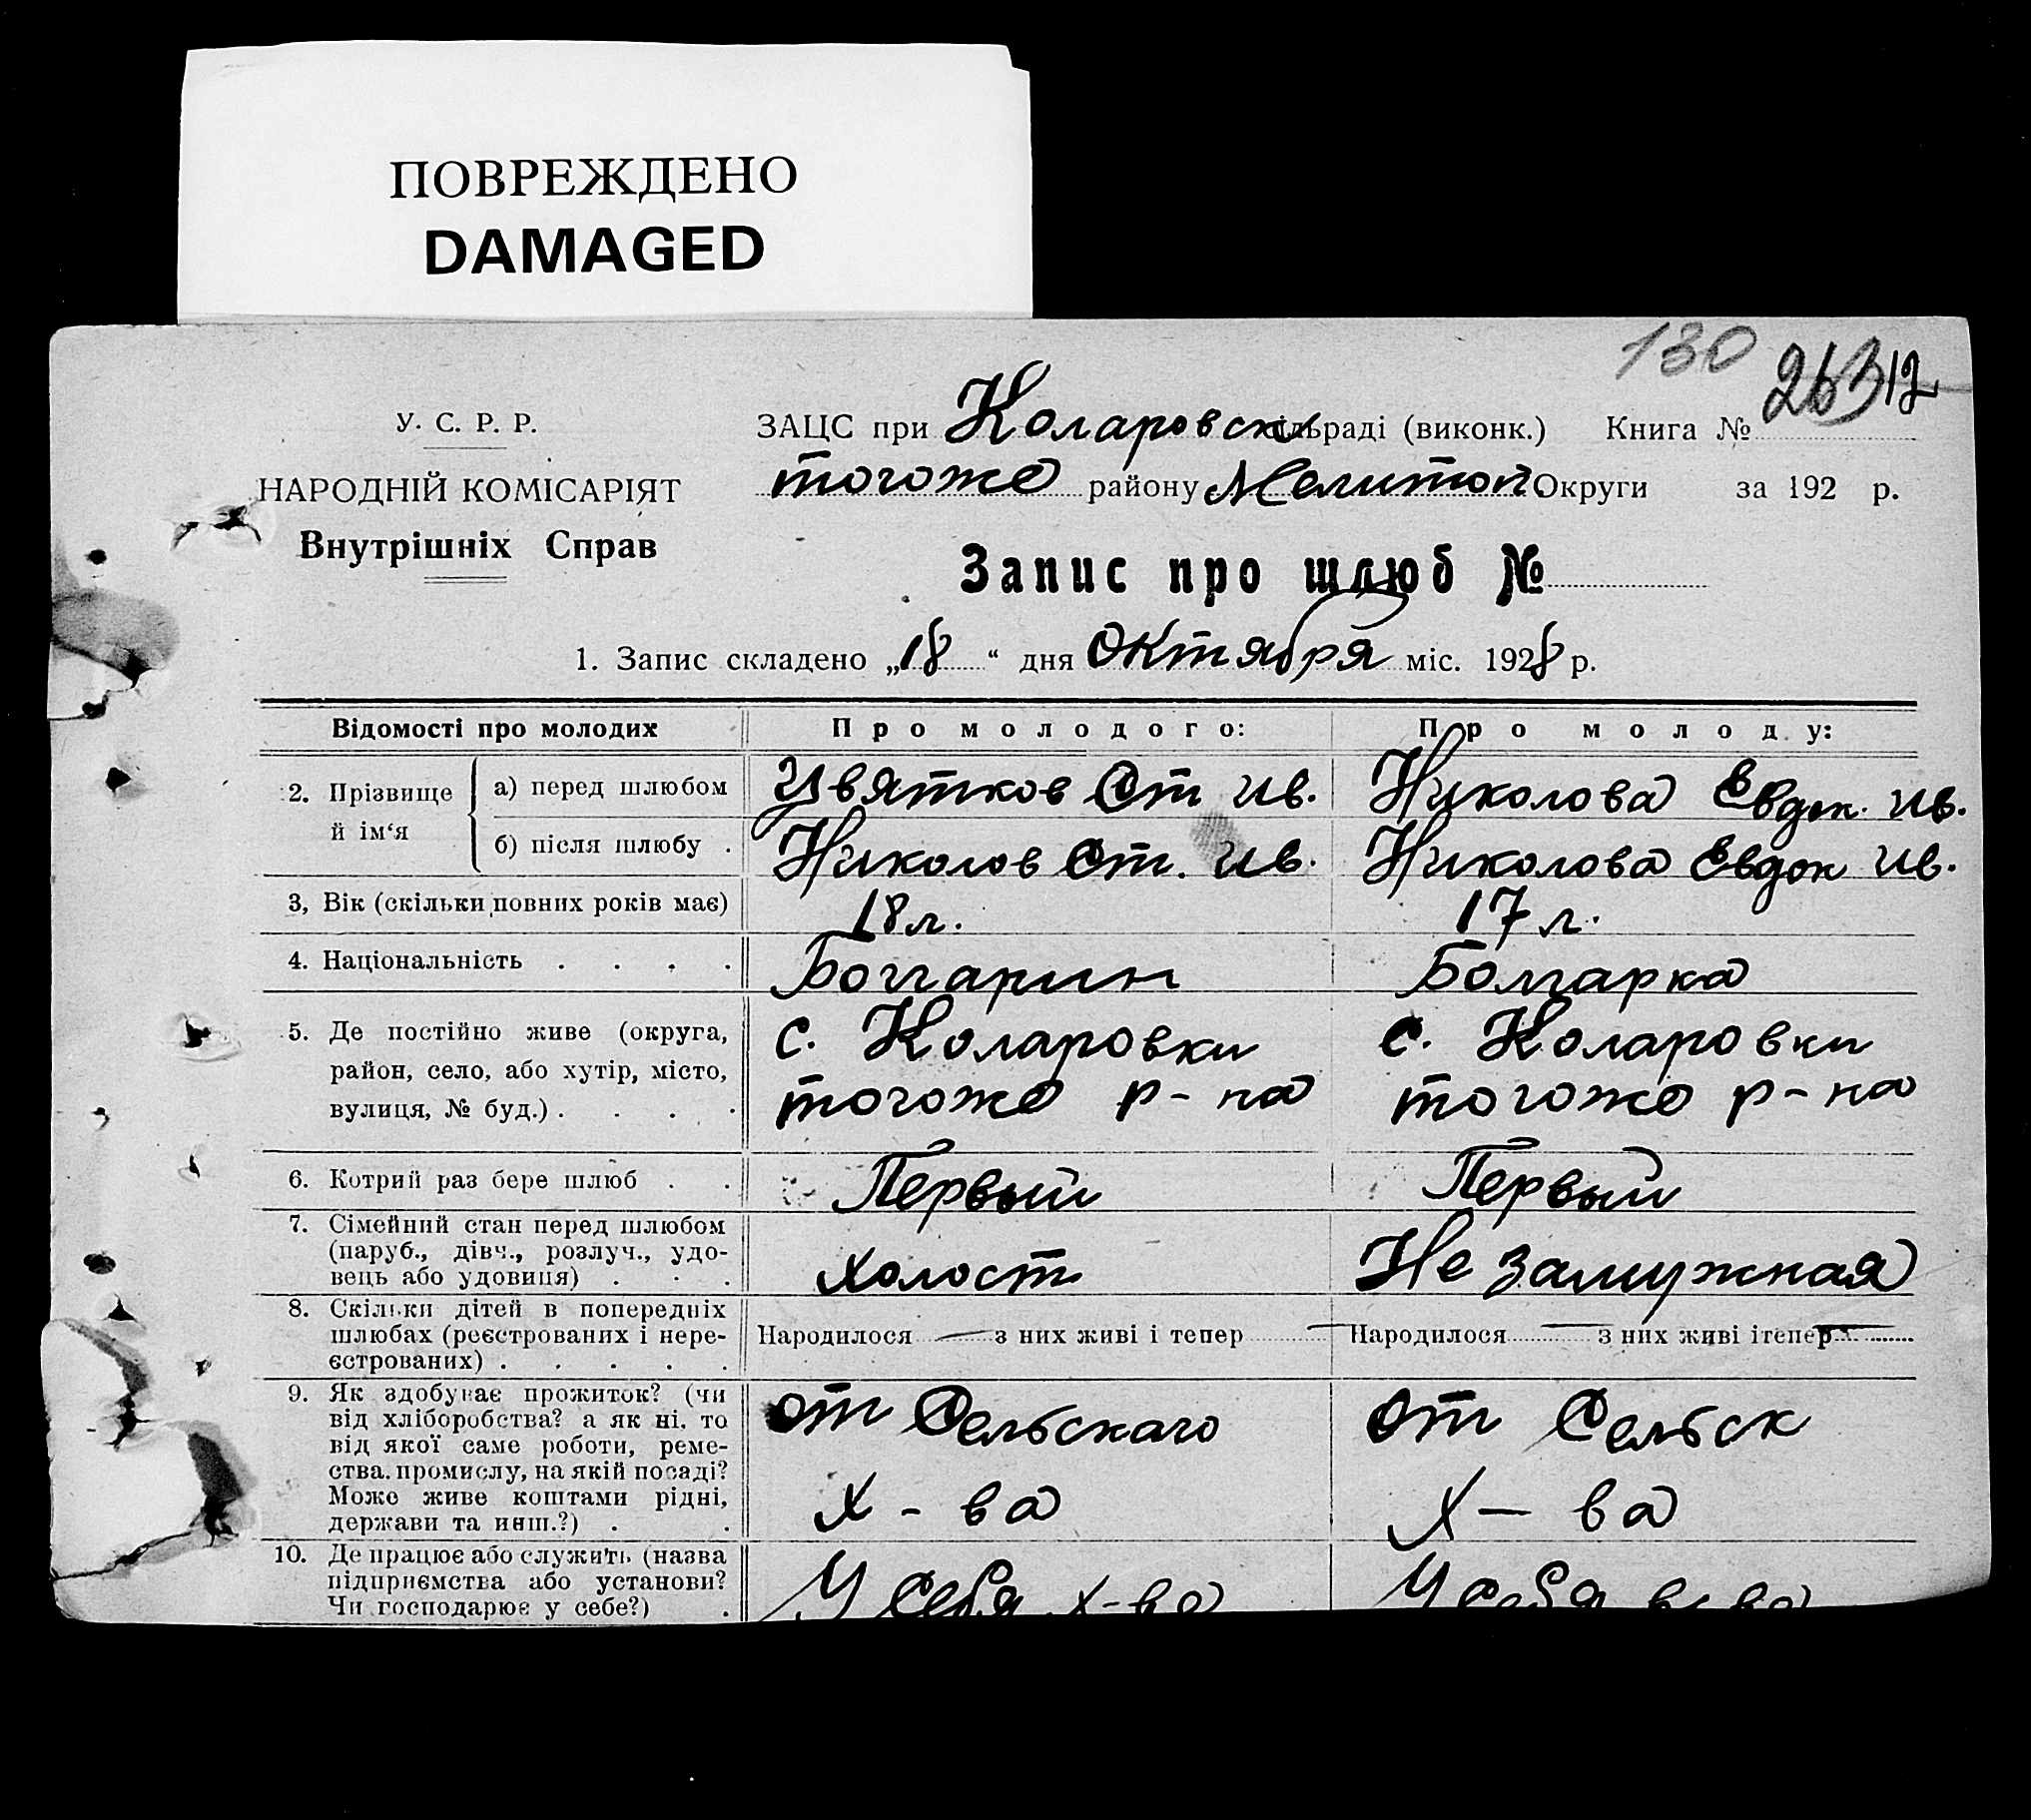 ПОВРЕЖДЕНО
DAMAGED
130
26312
У. С. Р. Р.
НАРОДНІЙ КОМІСАРІЯТ
Внутрішніх Справ
ЗАЦС при Коларовск сільраді (виконк.) Книга №
тогоже району Мелитоп Округи за 192 р.
Запис про шлюб №
1. Запис складено „18“ дня Октября міс. 1928 р.
Відомості про молодих Про молодого: Про молоду:
2. Прізвище й ім‘я
а) перед шлюбом Цвятков Ст Ив. Николова Евдок. Ив.
б) після шлюбу . Николов Ст. Ив. Николова Евдок Ив.
3, Вік (скільки повних років має) 18 л. 17 л.
4. Національність . . . . Болгарин Болгарка
5. Де постійно живе (округа, с. Коларовки с. Коларовки
район, село, або хутір, місто, тогоже р-на тогоже р-на
вулиця, № буд.) . . . .
6. Котрий раз бере шлюб . . Первый Первый
7. Сімейний стан перед шлюбом
(паруб., дівч., розлуч., удо-
вець або удовиця) . . . Холост Не замужная
8. Скільки дітей в попередніх
шлюбах (реєстрованих і нере- Народилося — з них живі і тепер — Народилося — з них живі ітепер —
єстрованих) . . . . .
9. Як здобуває прожиток? (чи
від хліборобства? а як ні, то от Сельскаго от Сельск
від якої саме роботи, реме-
ства. промислу, на якій посаді?
Може живе коштами рідні, Х - ва Х — ва
держави та инш.?) . .
10. Де працює або служить (назва
підприємства або установи?
Чи господарює у себе?) . У себя х-ва У себя